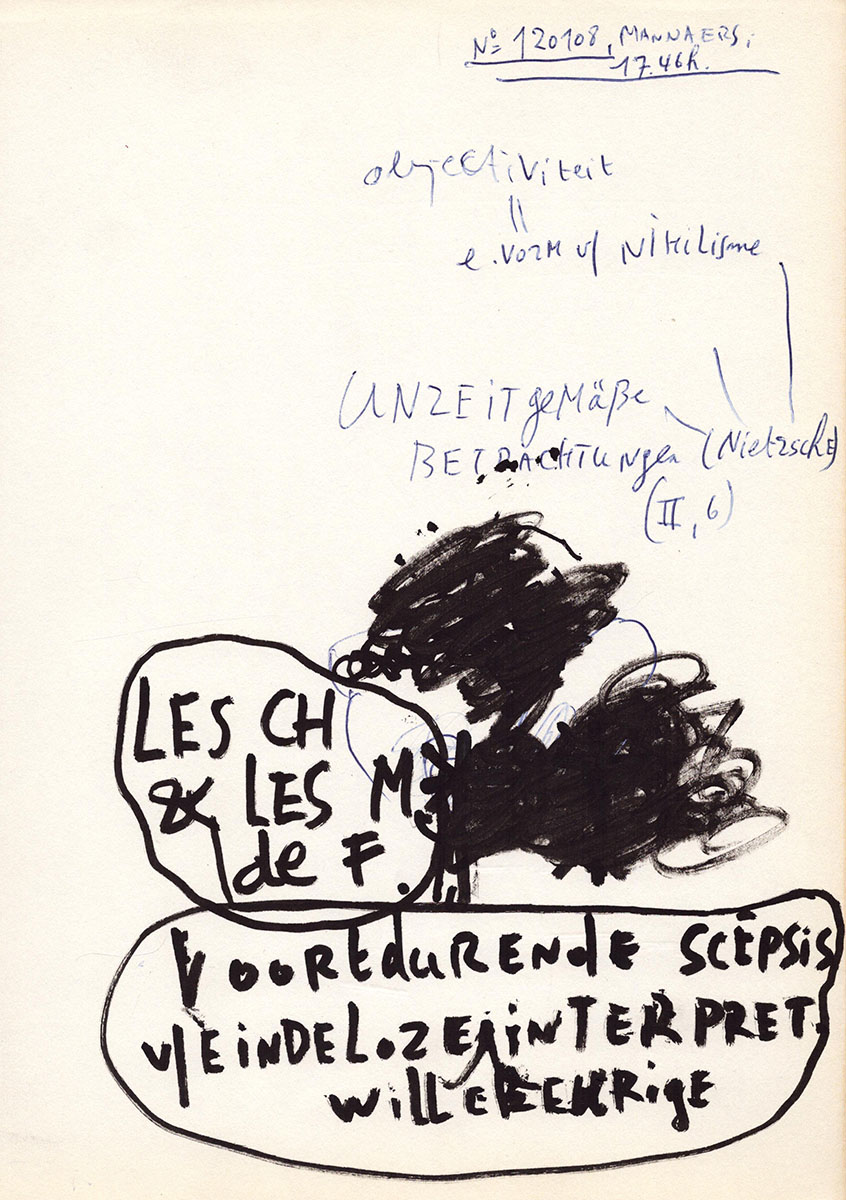 Nº 120108, MANNAERS,
17.46h.
objectiviteit
e. vorm v/ NiHiLisme
UNZEiTgeMÄße
BETRACHTUNgen (Nietzsche)
(II, 6)
LES CH
& LES M.
de F.
VOORtduRENdE SCEPSiS
v/EiNDELOZE iNTERPRET.
wiLLEKEURige